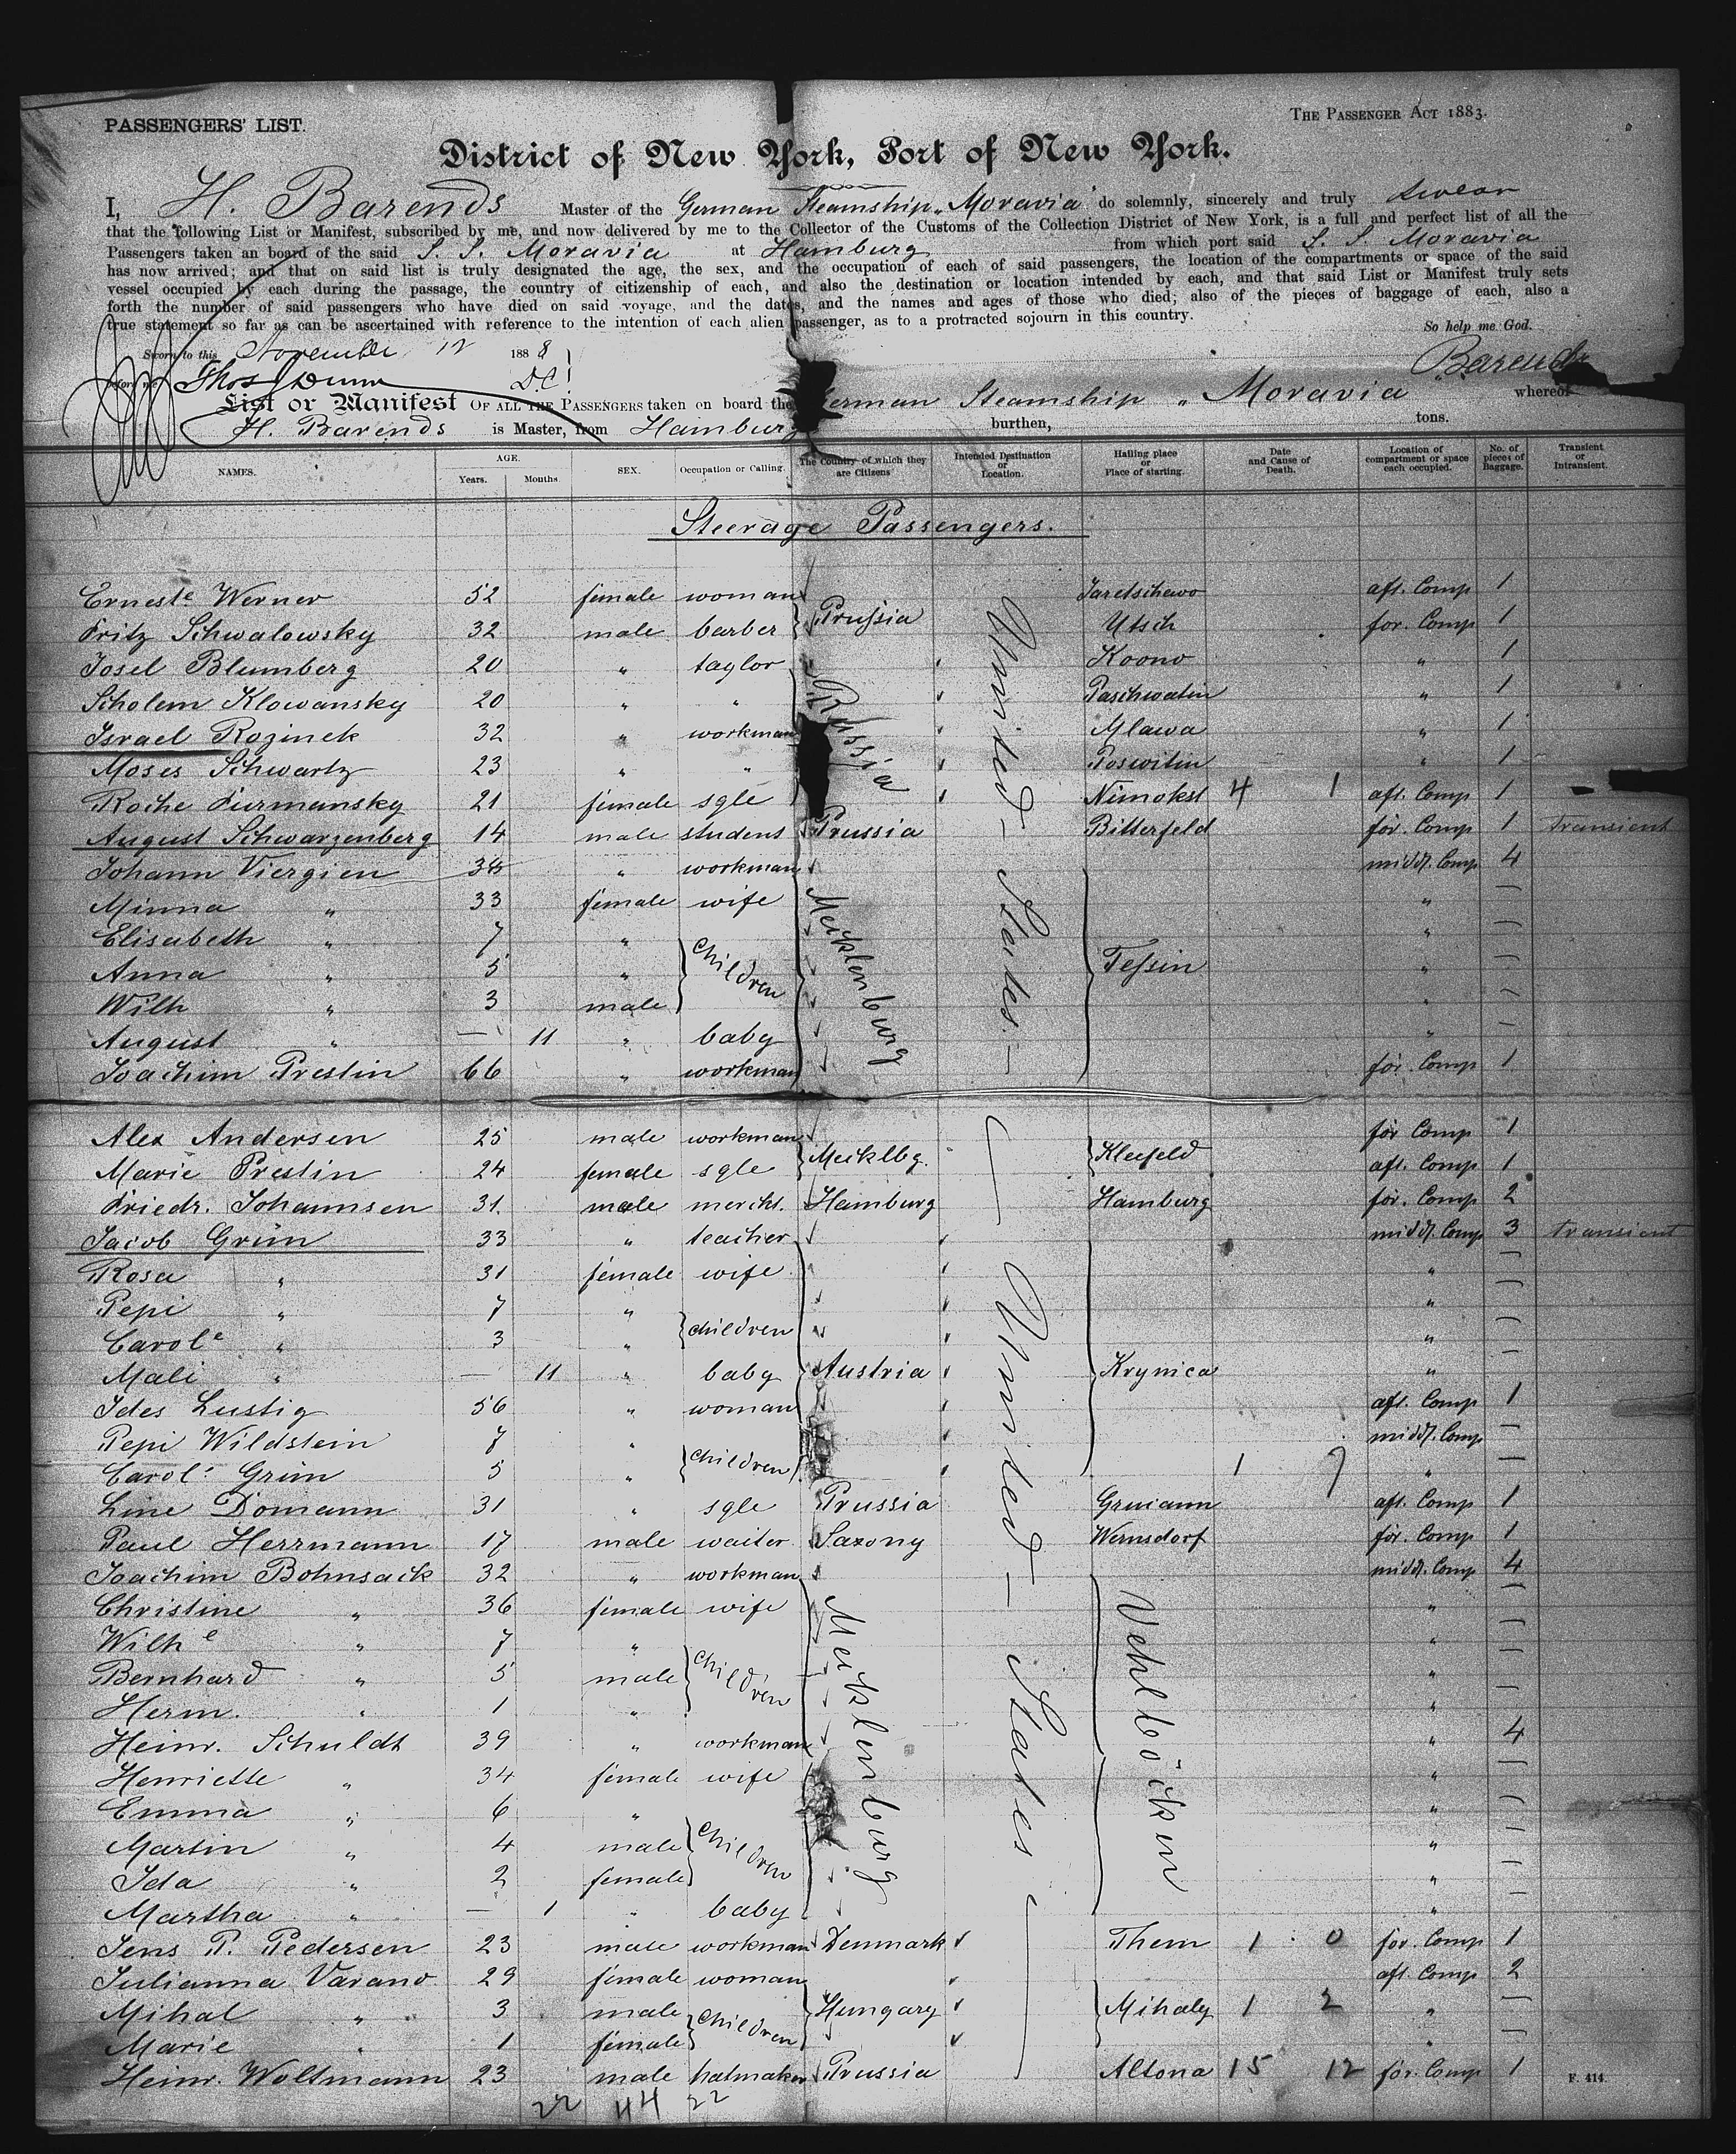 PASSENGERS' LIST.
THE PASSENGER ACT 1883.
District of New York, Port of New York.
I, H. Barends Master of the German Steamship „Moravia" do solemnly, sincerely and truly swear
that the following List or Manifest, subscribed by me, and now delivered by me to the Collector of the Customs of the Collection District of New York, is a full and perfect list of all the
Passengers taken an board of the said S. S. Moravia at Hamburg from which port said S. S. Moravia
has now arrived; and that on said list is truly designated the age, the sex, and the occupation of each of said passengers, the location of the compartments or space of the said
vessel occupied by each during the passage, the country of citizenship of each, and also the destination or location intended by each, and that said List or Manifest truly sets
forth the number of said passengers who have died on said voyage, and the dates, and the names and ages of those who died; also of the pieces of baggage of each, also a
true statement so far as can be ascertained with reference to the intention of each alien passenger, as to a protracted sojourn in this country.
So help me God.
Sworn to this November 12 1888
Barends
before me Thos J Dunn DC
List or Manifest OF ALL THE PASSENGERS taken on board the German Steamship „Moravia" whereof
H. Barends is Master, from Hamburg burthen, tons.
NAMES. AGE. Years. Months. SEX. Occupation or Calling. The Country of which they are Citizens Intended Destination or Location. Hailing place or Place of starting. Date and Cause of Death. Location of compartment or space each occupied. No. of pieces of Baggage. Transient or Intransient.
Steerage Passengers.
Erneste Werner 52 female woman Jaretschewo aft. Comp 1
Fritz Schwalowsky 32 male barber Prussia Utsch for. Comp 1
Josel Blumberg 20 " taylor Koono " 1
Scholem Klowansky 20 " " Russia Paschwatin " 1
Israel Rozinek 32 " workman Mlawa " 1
Moses Schwartz 23 " " Poswitin " 1
Roche Furmansky 21 female sgle Nimokst 4 1 aft. Comp 1
August Schwarzenberg 14 male student Prussia Bitterfeld for. Comp 1 transient
Johann Viergien 34 " workman middl. Comp 4
Minna " 33 female wife " —
Elisabeth " 7 " children " —
Anna " 5 " Mecklenburg United States Tessin " —
Wilh " 3 male " —
August " — 11 " baby " —
Joachim Prestin 66 " workman for. Comp 1
Alex Andersen 25 male workman for Comp 1
Marie Prestin 24 female sgle Mecklbg. Kleefeld aft. Comp 1
Friedr. Johannsen 31 male mercht. Hamburg Hamburg for. Comp 2
Jacob Grün 33 " teacher middl. Comp 3 transient
Rosa " 31 female wife " —
Pepi " 7 " children " —
Carole " 3 " " —
Mali " — 11 " baby Austria Krynica " —
Ides Lustig 56 " woman aft. Comp 1
Pepi Wildstein 7 " children middl. Comp —
Carol. Grün 5 " 1 7 " —
Line Domann 31 " sgle Prussia Gruiann aft. Comp 1
Paul Herrmann 17 male waiter Saxony Wernsdorf for. Comp 1
Joachim Bohnsack 32 " workman middl. Comp 4
Christine " 36 female wife " —
Wilhe " 7 " children " —
Bernhard " 5 male United States " —
Herm. " 1 " " —
Heinr. Schuldt 39 " workman Mecklenburg Vehlböcken " 4
Henriette " 34 female wife " —
Emma " 6 " children " —
Martin " 4 male " —
Ida " 2 female " —
Martha " — 1 " baby " —
Jens P. Pedersen 23 male workman Denmark Them 1 0 for. Comp 1
Julianna Varano 29 female woman aft. Comp 2
Mihal " 3 male children Hungary Mihaly 1 2 " —
Marie " 1 female " —
Heinr. Woltmann 23 male hatmaker Prussia Altona 15 12 for. Comp 1
22 44 22
F. 414.